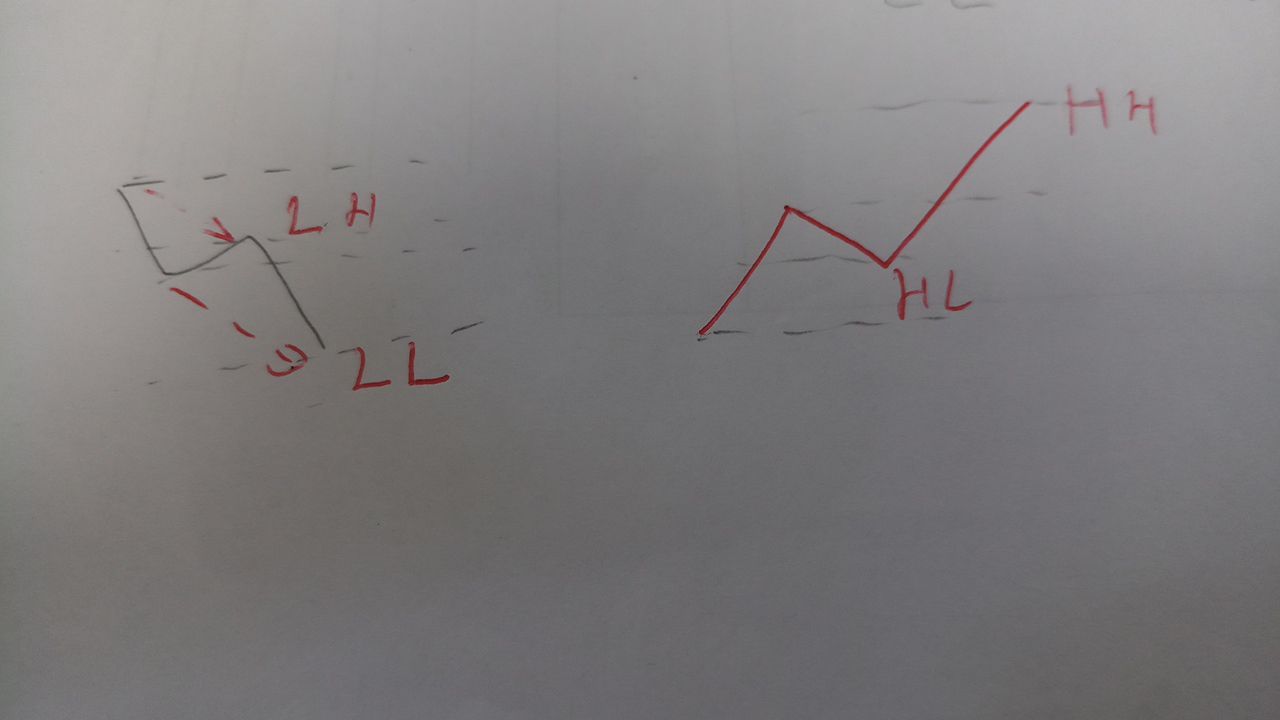 LH
LL
HH
HL